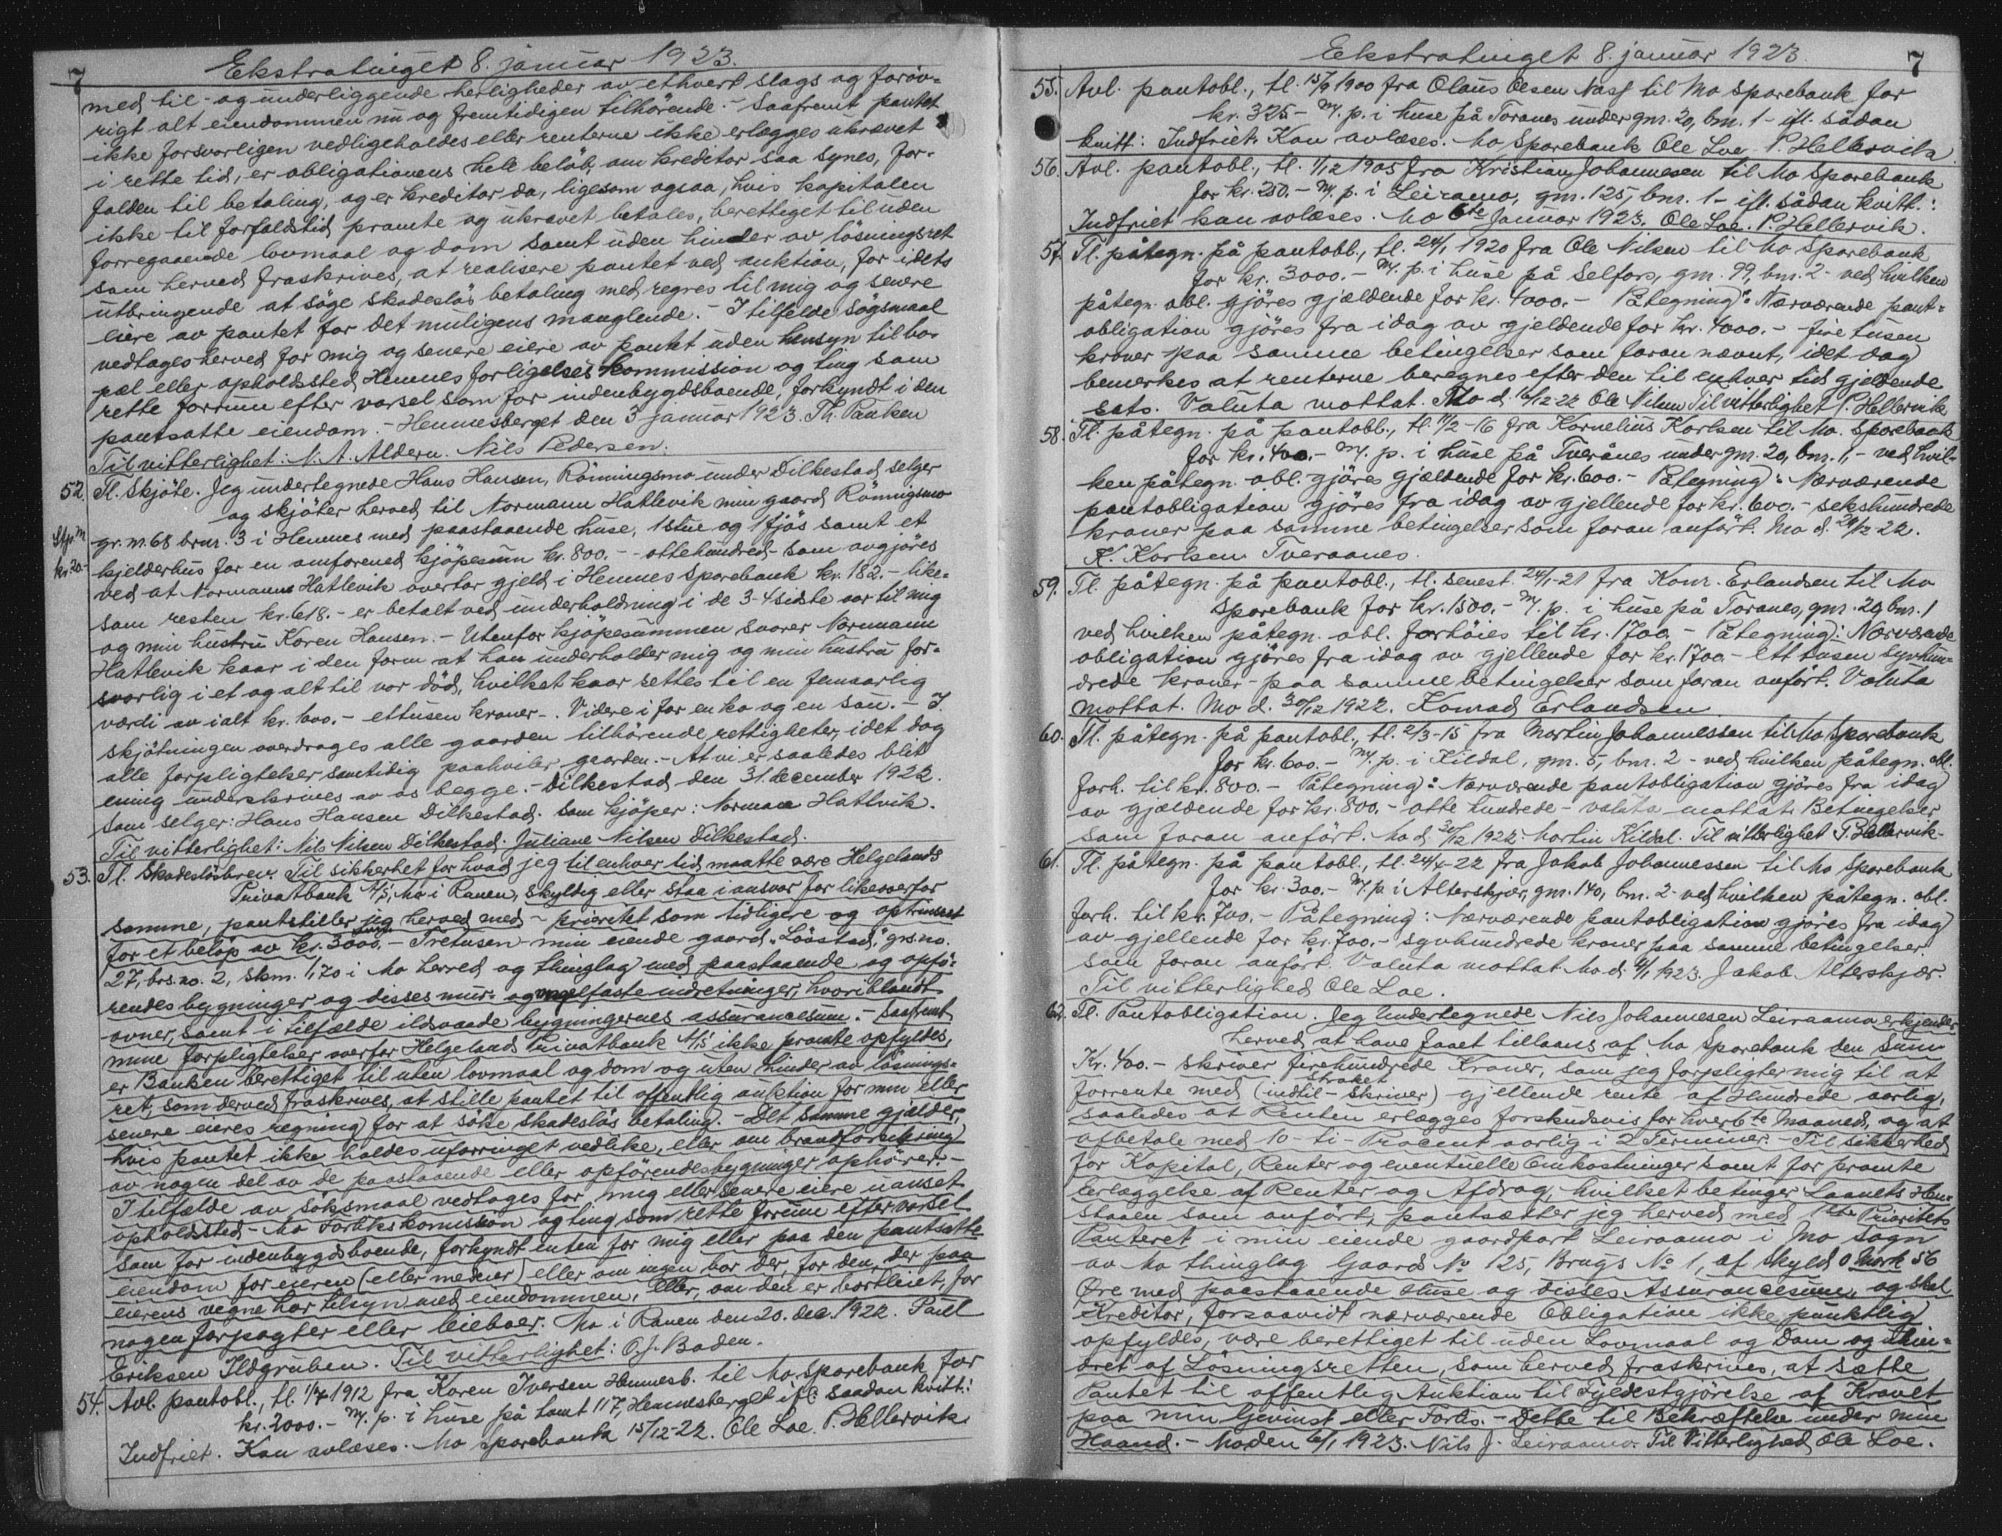 7
Ekstratinget 8. januar 1923.
med til- og underliggende herligheder av ethvert slags og forøv-
rigt alt eiendommen nu og fremtidigen tilhörende. - Saafremt pantet
ikke forsvarligen vedligeholdes eller renterne ikke erlægges ukrævet
i rette tid, er obligationens hele beløb, om kreditor saa synes, for-
falden til betaling, og er kreditor da, ligesom ogsaa, hvis kapitalen
ikke til forfaldstid promte og ukrævet betales, berettiget til uden
forregaaende lovmaal og dom samt uden hinder av lösningsret
som herved fraskrives, at realisere pantet ved auktion, for idets
utbringende at söge skadeslös betaling med regres til mig og senere
eiere av pantet for det muligens manglende. - I tilfelde søgsmaal
vedtages herved for mig og senere eiere av pantet uden hensyn til bo-
pæl eller opholdssted Hemnes forligelseskommission og ting som
rette forrum efter varsel som for indenbygdsboende, forkyndt i den
pantsatte eiendom. - Hemnesberget den 3 januar 1923. Th. Paulsen
Til vitterlighet: N. A. Aldern. Nils Pedersen.
52. Tl. Skjöte. Jeg undertegnede Hans Hansen, Rönningsmo under Dilkestad selger
og skjöter herved til Normann Hatlevik min gaard Rönnigsmo
Stpl. M kr 20.-
gr. n. 68 brnr. 3 i Hemnes med paastaaende huse, 1 stue og 1 fjös samt et
kjelderhus for en omforened kjöpesum kr. 800.- - ottehundred - som avgjöres
ved at Normann Hatlevik overtar gjeld i Hemnes Sparebank kr. 182.- like-
som resten kr. 618.- er betalt ved underholdning i de 3-4 sidste aar til mig
og min hustru Karen Hansen. - Utenfor kjöpesummen svarer Normann
Hatlevik kaar i den form at han underholder mig og min hustru for-
svarlig i et og alt til vor död, hvilket kaar settes til en femaarlig
værdi av i alt kr. 1000.- ettusen kroner -. Videre i for en ko og en sau. - I
skjötningen overdrages alle gaarden tilhörende rettigheter, idet dog
alle forpligtelser samtidig paahviler gaarden. - At vi er saaledes blit
enig underskrives av os begge. - Dilkestad den 31. december 1922.
Som selger: Hans Hansen Dilkestad. Som kjöper: Norman Hatlvik.
Til vitterlighet: Nils Nilsen Dilkestad. Juliane Nilsen Dilkestad.
53. Tl. Skadeslösbrev. Til sikkerhet for hvad jeg til enhver tid maatte være Helgelands
Privatbank A/S, Mo i Ranen, skyldig eller staa i ansvar for likeoverfor
samme, pantstiller jeg herved med - prioritet som tidligere og optrinsret
for et belöp av kr. 3000.- Tretusen - min eiende gaard "Lövstad," grs.no.
27, brs.no. 2, skm. 1,70 i Mo herred og thinglag med paastaaende og opfö-
rendes bygninger og disses mur- og nagelfaste indretninger, hvoriblandt
ovner, samt i tilfælde ildsvaade bygningernes assurancesum. - Saafremt
mine forpligtelser overfor Helgelands Privatbank A/S ikke promte opfyldes,
er Banken berettiget til uten lovmaal og dom og uten hinder av lösnings-
ret, som derved fraskrives, at stille pantet til offentlig auktion for min eller
senere eieres regning for at söke skadeslös betaling. - Det samme gjælder
hvis pantet ikke holdes uforringet vedlike, eller om brandforsikring
av nogen del av de paastaaende eller opförendes bygninger ophörer. -
I tilfælde av söksmaal vedtages for mig eller senere eiere uanset
opholdsted - Mo Forlikskomission og ting som rette forum efter varsel
som for indenbygdsboende, forkyndt enten for mig eller paa den pantsatte
eiendom for eieren (eller medeier) eller om ingen bor der, for den, der paa
eierens vegne har tilsyn med eiendommen, eller, om den er bortleiet, for
nogen forpagter eller leieboer. Mo i Ranen den 20. des. 1922. Paul
Eriksen Ildgruben. Til vitterlighet: O. J. Baden.
54. Avl. pantobl., tl. 1/4 1912 fra Karen Iversen Hemnesb. til Mo Sparebank for
kr. 2000.- m/ p. i huse på tomt 117, Hemnesberget ifl. saadan kvitt:
Indfriet. Kan avlæses. Mo sparebank 15/12-22. Ole Loe. P. Hellervik
Ekstratinget 8. januar 1923.
7
55. Avl. pantobl., tl. 15/9 1900 fra Olaus Olsen Næss til Mo Sparebank for
kr. 325.- m/ p. i huse på Toranes under gnr. 20, bnr. 1 - ifl. sådan
kvitt: Indfriet. Kan avlæses. Mo Sparebank Ole Loe P. Hellervik
56. Avl. pantobl., tl. 1/12 1905 fra Kristian Johannesen til Mo Sparebank
for kr. 250.- m/ p. i Leiramo, gnr. 125, bnr. 1 - ifl. sådan kvitt.:
Indfriet kan avlæses. Mo 6te Januar 1923. Ole Loe. P. Hellervik.
57. Tl. påtegn. på pantobl., tl. 24/1 1920 fra Ole Nilsen til Mo Sparebank
for kr. 3000.- m/ p. i huse på Selfors, gnr. 99, bnr. 2 - ved hvilken
påtegn. obl. gjöres gjældende for kr. 4000.- Påtegning: Nærværende pant-
obligation gjöres fra idag av gjeldende for kr. 4000.- fire tusen
kroner paa samme betingelser som foran nævnt, idet dog
bemerkes at renterne beregnes efter den til enhver tid gjeldende
sats. Valuta mottat. Mo d. 16/12 22 Ole Nilsen Til vitterlighet P. Hellervik
58. Tl. påtegn. på pantobl., tl. 11/2-16 fra Kornelius Karlsen til Mo Sparebank
for kr. 400.- m/ p. i huse på Tverånes under gnr. 20, bnr. 1, - ved hvil-
ken påtegn. obl. gjöres gjældende for kr. 600.- Påtegning: Nærværende
pantobligation gjöres fra idag av gjellende for kr. 600.- sekshundrede
kroner paa samme betingelser som foran anfört. Mo d. 29/12 22.
K. Karlsen Tveraanes.
59. Tl. påtegn. på pantobl., tl. senest 24/1-21 fra Konr. Erlandsen til Mo
Sparebank for kr. 1500.- m/ p. i huse på Toranes, gnr. 20, bnr. 1
ved hvilken påtegn. obl. forhöies til kr. 1700.- Påtegning: Nærværende
obligation gjöres fra idag av gjellende for kr. 1700.- ett tusen syvhun-
drede kroner - paa samme betingelser som foran anfört. Valuta
mottat. Mo d. 30/12 1922. Konrad Erlandsen
60. Tl. påtegn. på pantobl., tl. 2/3-15 fra Martin Johannessen til Mo Sparebank
for kr. 600.- m/ p. i Kildal, gnr. 5, bnr. 2 - ved hvilken påtegn. obl.
forh. til kr. 800.- Påtegning: Nærværende pantobligation gjöres fra idag
av gjældende for kr. 800.- otte hundrede - valuta mottat. Betingelser
som foran anfört. Mo d. 30/12 1922. Martin Kildal. Til vitterlighet P. Hellervik -
61. Tl. påtegn. på pantobl., tl. 24/4-22 fra Jakob Johannessen til Mo Sparebank
for kr. 300.- m/ p. i Alterskjær, gnr. 140, bnr. 2 - ved hvilken påtegn. obl.
forh. til kr. 700.- Påtegning: Nærværende pantobligation gjöres fra idag
av gjellende for kr. 700.- syvhundrede kroner paa samme betingelser
som foran anfört. Valuta mottat. Mo d. 6/1 1923. Jakob Alterskjær.
Til vitterlighed Ole Loe.
62. Tl. Pantobligation. Jeg Undertegnede Nils Johannesen Leiraamo erkjender
herved at have faaet tillaans af Mo Sparebank den Sum
Kr. 400.- skriver firehundrede Kroner, som jeg forpligter mig til at
forrente med (indtil - strøket skriver) gjellende rente af Hundrede aarlig,
saaledes at Renten erlægges forskudsvis for hver 6te Maaned, og at
afbetale med 10 - ti - Procent aarlig i 2 Terminer. - Til Sikkerhed
for Kapital, Renter og eventuelle Omkostninger samt for promte
Erlæggelse af Renter og Afdrag, hvilket betinger Laanets Hen-
staaen som anfört, pantsætter jeg herved med 1ste Prioritets
Panteret i min eiende gaardpart Leiraamo i Mo Sogn
av Mo thinglag Gaards No 125, Brugs No 1, af Skyld 0 Mark 56
Øre med paastaaende Huse og disses Assurancesum, og skal
Kreditor, forsaavidt nærværende Obligation ikke punktlig
opfyldes, være berettiget til uden Lovmaal og Dom og Hin-
dret af Lösningsretten, som herved fraskrives, at sætte
Pantet til offentlig Auktion til Fyldestgjörelse af Kravet
paa min Gevinst eller Forlis. - Dette til Bekræftelse under min
Haand. - Mo den 6/1 1923. Nils J. Leiraamo. Til Vitterlighed Ole Loe.